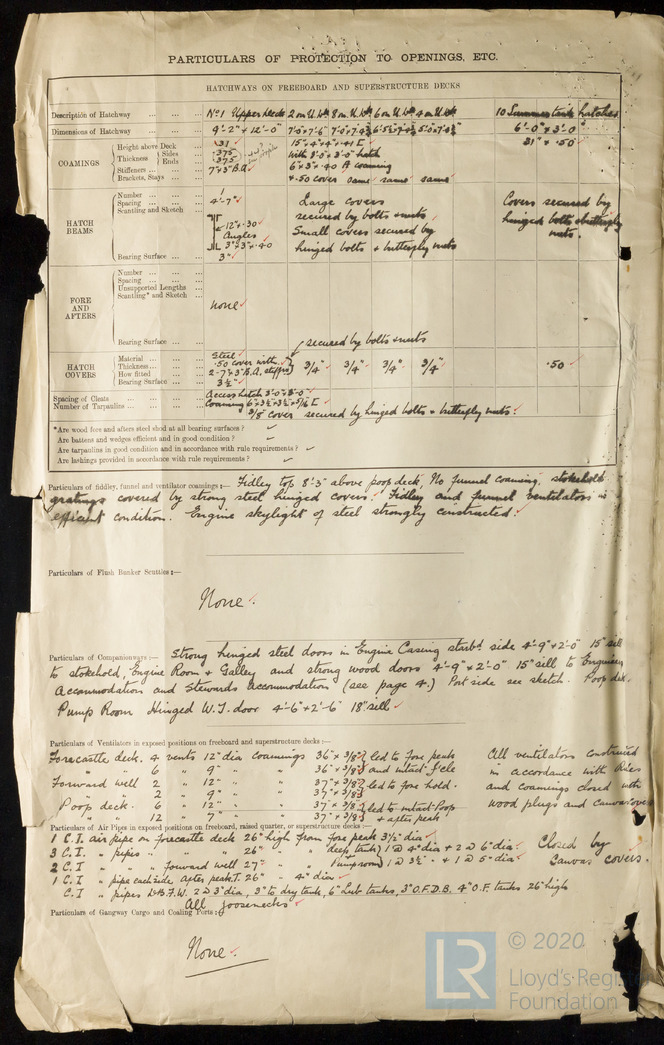 PARTICULARS OF PROTECTION TO OPENINGS, ETC.
HATCHWAYS ON FREEBOARD AND SUPERSTRUCTURE DECKS
Description of Hatchway No 1 Upper Deck 2 on U.Dk 8 on U.Dk 6 on U.Dk 4 on U.Dk 10 Summer tank hatches
Dimensions of Hatchway 9'-2" × 12'-0" 7'-0" × 7'-6" 6'-0" × 3'-0"
COAMINGS
Height above Deck 31 15" 31" × .50
Thickness Sides .375 with 3'-0" × 3'-0" hatch
Ends .375 6" × 3" × .40 coaming
Stiffeners 7" × 3" B.A. + .50 cover same same same
Brackets, Stays
HATCH BEAMS
Number 1
Spacing 4'-7" Large covers Covers secured by
Scantling and Sketch secured by bolts & nuts hinged bolts & butterfly
12" × .30 Small covers secured by nuts.
Angles hinged bolts & butterfly nuts
3" × 3" × .40
Bearing Surface 3"
FORE AND AFTERS
Number
Spacing
Unsupported Lengths
Scantling* and Sketch
none
Bearing Surface secured by bolts & nuts
HATCH COVERS
Material Steel
Thickness .50 cover with 3/4" 3/4" 3/4" 3/4" .50
How fitted 2-7" × 3" B.A. stiffrs
Bearing Surface 3½"
Spacing of Cleats Access hatch 3'-0" × 3'-0"
Number of Tarpaulins Coaming 6" × 3½" × 3½" × 5/16 [
3/8" cover secured by hinged bolts & butterfly nuts.
*Are wood fore and afters steel shod at all bearing surfaces?
Are battens and wedges efficient and in good condition?
Are tarpaulins in good condition and in accordance with rule requirements?
Are lashings provided in accordance with rule requirements?
Particulars of fiddley, funnel and ventilator coamings:— Fidley top 8'-3" above poop deck. No funnel coaming, stokehold
gratings covered by strong steel hinged covers. Fidley and funnel ventilators in
efficient condition. Engine skylight of steel strongly constructed.
Particulars of Flush Bunker Scuttles:—
None.
Particulars of Companionways:— Strong hinged steel doors in Engine Casing starbd side 4'-9" × 2'-0" 15" sill
to stokehold, Engine Room & Galley and strong wood doors 4'-9" × 2'-0" 15" sill to Engineers
Accommodation and Stewards accommodation (see page 4.) Port side see sketch. Poop deck.
Pump Room Hinged W.T. door 4'-6" × 2'-6" 18" sill
Particulars of Ventilators in exposed positions on freeboard and superstructure decks:—
Forecastle deck. 4 vents 12" dia coamings 36" × 3/8" led to fore peak All ventilators constructed
" " 6 " 9" " " 36" × 3/8" and intact F'cle in accordance with Rules
Forward well 2 " 12" " " 37" × 3/8" led to fore hold. and coamings closed with
" " 2 " 9" " " 37" × 3/8" wood plugs and canvas covers
Poop deck. 6 " 12" " " 37" × 3/8" led to intact Poop
" " 12 " 7" " " 37" × 3/8" + after peak
Particulars of Air Pipes in exposed positions on freeboard, raised quarter, or superstructure decks:—
1 C.I. air pipe on forecastle deck 26" high from fore peak 3½" dia
3 C.I. " pipes " " 26" " " deep tank) 1 @ 4" dia + 2 @ 6" dia Closed by
2 C.I. " " " forward well 27" " " Pump room) 1 @ 3½" " + 1 @ 5" dia Canvas covers.
1 C.I. " pipe each side after peak T. 26" " 4" dia
C.I. " pipes D.B.F.W. 2 @ 3" dia, 3" to dry tank, 6" Lub tanks, 3" O.F.D.B. 4" O.F. tanks 26" high
All goosenecks
Particulars of Gangway Cargo and Coaling Ports:—
None.
LR © 2020
Lloyd's Register
Foundation